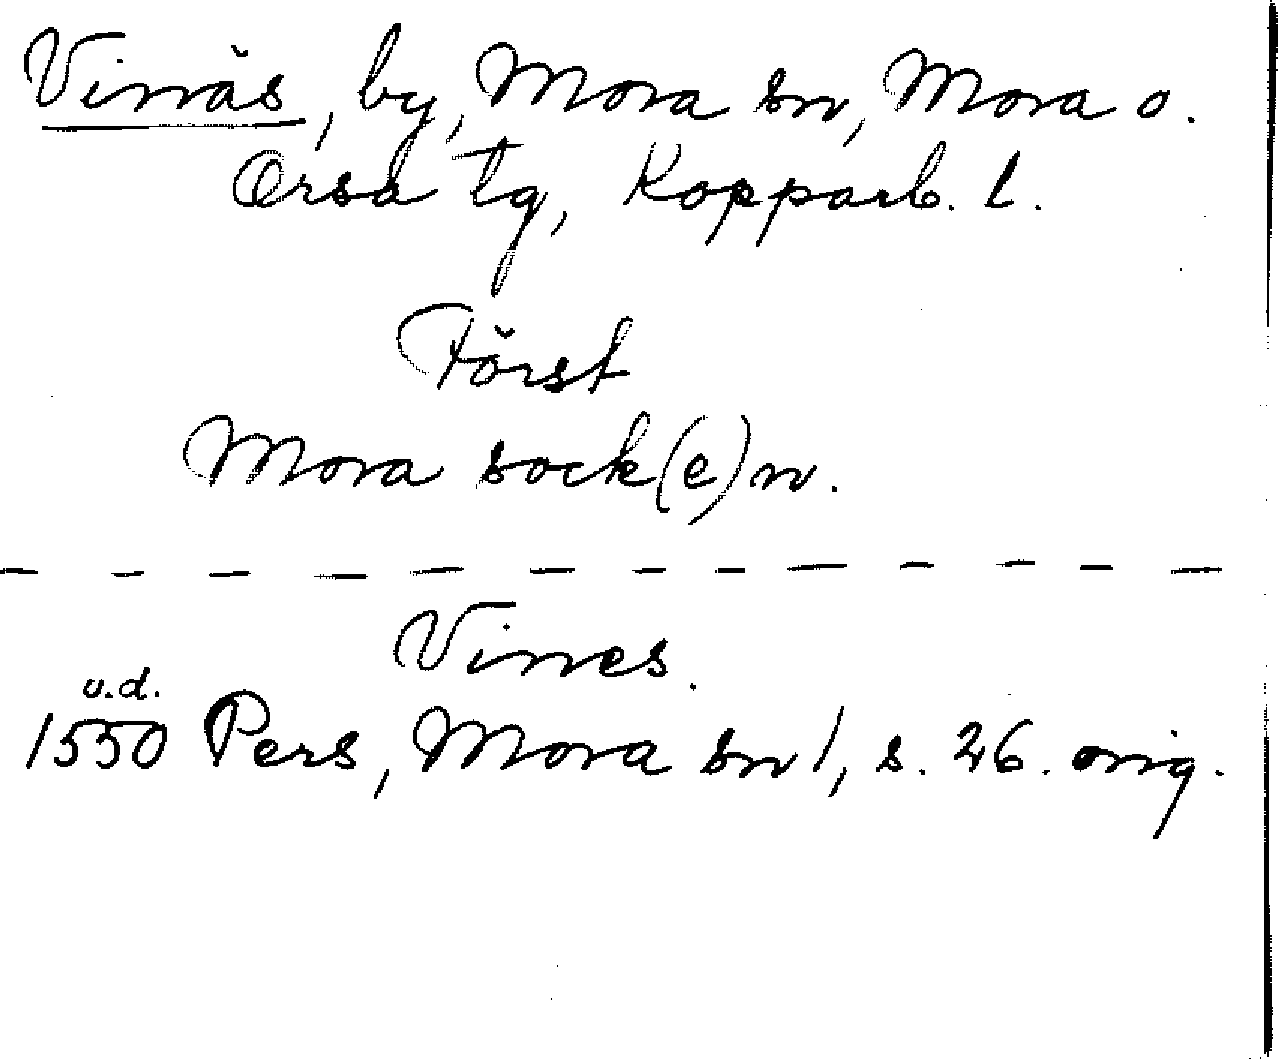 Vinäs, by, Mora sn, Mora o.
Orsa tg, Kopparb. l.
Först
Mora sock(e)n.
Vinnes.
u.d.
1550 Pers, Mora sn 1, s. 26. orig.